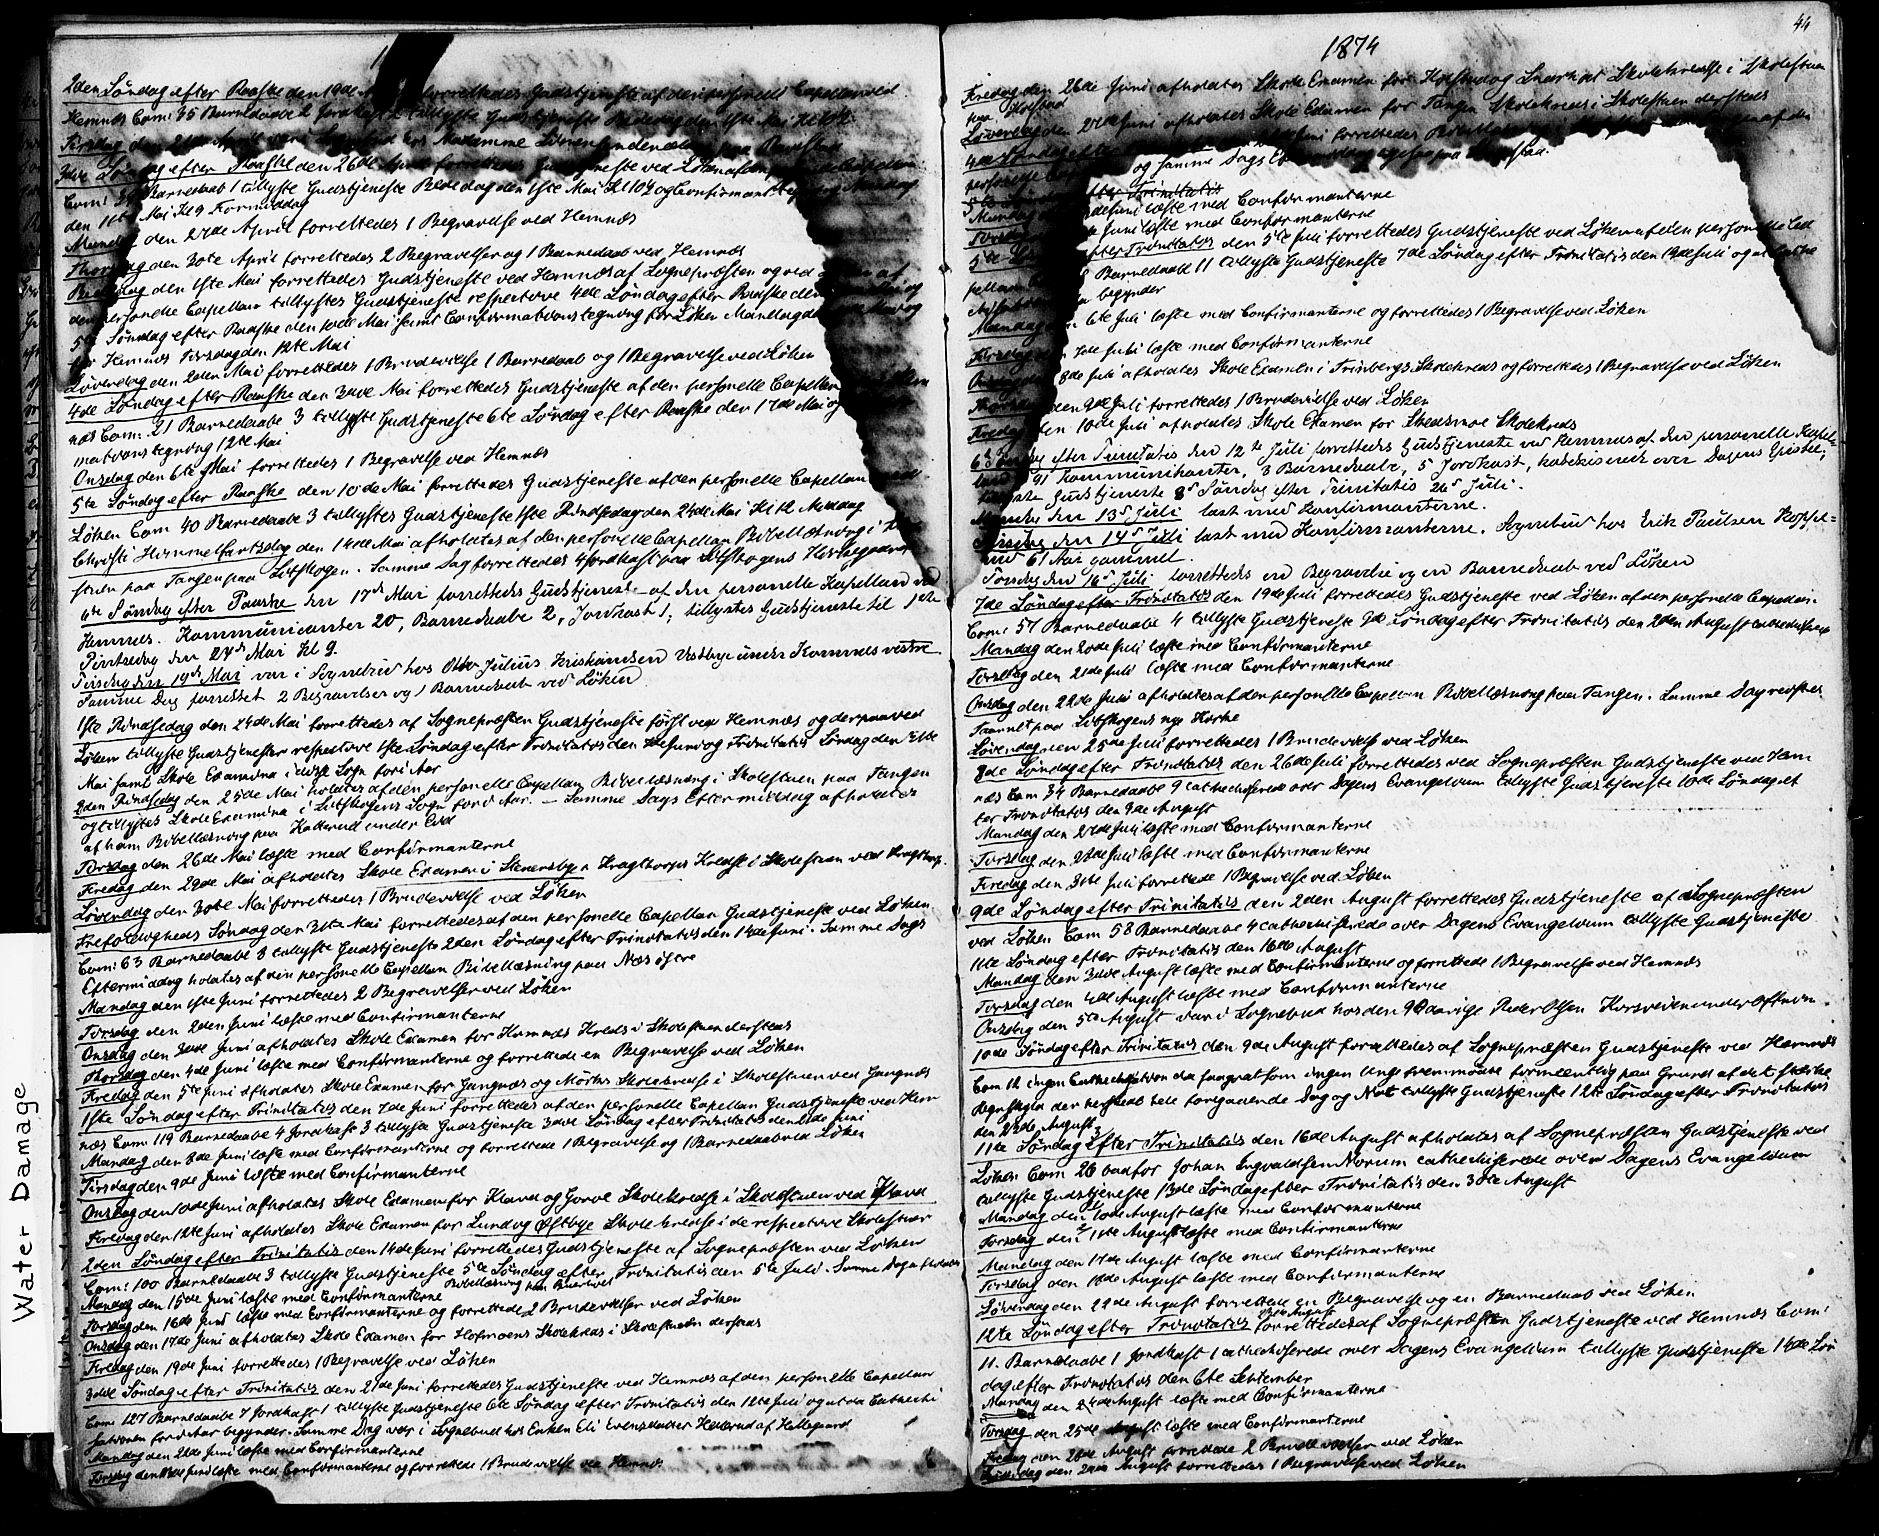 2den Søndag efter Paaske den 19de forrettedes Gudstjeneste af den personelle Capellan ved
Hemnæs Com: 35 Barnedaabe 2 Jordkast 2 tillyste Gudstjeneste Bededag den 1ste Mai Kl 10½
Tirsdag den 21de April Madamme
3die Søndag efter Paaske den 26de April forrettedes Gudstjeneste ved Løken af den Capellan
Com: Barnedaab 1 tillyste Gudstjeneste Bededag den 1ste Mai Kl 10½ og Confirmant
den 11te Mai Kl 9 Formiddag
Mandag den 27de April forrettedes 1 Begravelse ved Hemnæs
Thorsdag den 30te April forrettedes 2 Begravelser og 1 Barnedaab ved Hemnæs
Bededag den 1ste Mai forrettedes Gudstjeneste ved Hemnæs af Sognepræsten og ved Løken af
den personelle Capellan tillystes Gudstjeneste respective 4de Søndag efter Paaske den
5te Søndag efter Paaske den 10de Mai samt Confirmationstegning for Løken Mandag d
for Hemnæs Tirsdag den 12te Mai
Løverdag den 2den Mai forrettedes 1 Brudevielse 1 Barnedaab og 1 Begravelse ved Løken
4de Søndag efter Paaske den 3die Mai forrettedes Gudstjeneste af den personelle Capellan
næs Com: 21 Barnedaabe 3 tillyste Gudstjeneste 6te Søndag efter Paaske den 17de Mai og
mationstegning 12te Mai
Onsdag den 6te Mai forrettedes 1 Begravelse ved Hemnæs
5te Søndag efter Paaske den 10de Mai forrettedes Gudstjeneste af den personelle Capellan
Løken Com 40 Barnedaabe 3 tillystes Gudstjeneste 1ste Pindsedag den 24de Mai Kl 12 Middag
Christi Himmelfartsdag den 14de Mai afholdtes af den personelle Capellan Bibellæsning i
stuen paa Tangen paa Setskogen. Samme Dag forrettedes 4 Jordkast paa Setskogens Kirkegaard
6te Søndag efter Paaske den 17de Mai forrettedes Gudstjeneste af den personelle Kapellan ved
Hemnes. Kommunicanter 20, Barnedaabe 2, Jordkast 1; tillystes Gudstjeneste til 1ste
Pintsedag den 24de Mai Kl 9.
Tirsdag den 19de Mai var i Sognebud hos Otto Julius Kristiansen Vestbye under Komnes vestre
Samme Dag forrettet 2 Begravelser og 1 Barnedaab ved Løken
1ste Pindsedag den 24de Mai forrettedes af Sognepræsten Gudstjeneste først ved Hemnæs og derpaa ved
Løken tillyste Gudstjenester respective 1ste Søndag efter Trinitatis den 7de Juni og Trinitatis Søndag den 31te
Mai samt Skole Examina i disse Sogn for i Aar
2den Pindsedag den 25de Mai holdtes af den personelle Capellan Bibellæsning i Skolestuen paa Tangen
og tillystes Skole Examina i Setskogens Sogn for i Aar. – Samme Dags Eftermiddag afholdtes
af ham Bibellæsning paa Kollerud under Eid
Tirsdag den 26de Mai læste med Confirmanterne
Fredag den 29de Mai afholdtes Skole Examen i Stenersby & Kragtorps Kredse i Skolestuen ved Kragtorp.
Løverdag den 30te Mai forrettedes 1 Brudevielse ved Løken
Trefoldigheds Søndag den 31te Mai forrettedes af den personelle Capellan Gudstjeneste ved Løken
Com: 63 Barnedaabe 8 tillyste Gudstjeneste 2den Søndag efter Trinitatis den 14de Juni. Samme Dags
Eftermiddag holdtes af den personelle Capellan Bibellæsning paa Næs øvre
Mandag den 1ste Juni forrettedes 2 Begravelser ved Løken
Tirsdag den 2den Juni læste med Confirmanterne
Onsdag den 3die Juni afholdtes Skole Examen for Komnæs Kreds i Skolestuen dersteds
Thorsdag den 4de Juni læste med Confirmanterne og forrettede en Begravelse ved Løken
Fredag den 5te Juni afholdtes Skole Examen for Gangnæs og Mørtvs Skolekredse i Skolestuen ved Gangnæs
1ste Søndag efter Trinitatis den 7de Juni forrettedes af den personelle Capellan Gudstjeneste ved Hem
næs Com: 119 Barnedaabe 4 Jordkast 3 tillyste Gudstjeneste 3die Søndag efter Trinitatis den 21de Juni
Mandag den 8de Juni læste med Confirmanterne og forrettede 1 Begravelse og 1 Barnedaab ved Løken
Tirsdag den 9de Juni læste med Confirmanterne
Onsdag den 10de Juni afholdtes Skole Examen for Klavd og Gorve Skolekredse i Skolestuen ved Klavd
Fredag den 12te Juni afholdtes Skole Examen for Lund og Østbye Skolekredse i de respective Skolestuer
2den Søndag efter Trinitatis den 14de Juni forrettedes Gudstjeneste af Sognepræsten ved Løken
Com: 100 Barnedaabe 3 tillyste Gudstjeneste 5te Søndag efter Trinitatis den 5te Juli. Samme Dag afholdtes
Bibellæsning paa
Mandag den 15de Juni læste med Confirmanterne
Tirsdag den 16de Juni læste med Confirmanterne og forrettede 2 Brudevielser ved Løken
Onsdag den 17de Juni afholdtes Skole Examen for Hofmoens Skolekreds i Skolestuen dersteds
Fredag den 19de Juni forrettedes 1 Begravelse ved Løken
3die Søndag efter Trinitatis den 21de Juni forrettedes Gudstjeneste ved Hemnæs af den personelle Capellan
Com: 127 Barnedaabe 7 Jordkast 1 tillyste Gudstjeneste 6te Søndag efter Trinitatis den 12te Juli og at da Catechi
sationen for i Aar begynder. Samme Dag var i Sognebud hos Enken Eli Evensdatter Hellerud af Hellegaard
Mandag den 22de Juni læste med Confirmanterne
Tirsdag den 23de Juni læste med Confirmanterne og forrettede 1 Brudevielse ved Hemnæs
44
1874
Fredag den 26de Juni afholdtes Skole Examen for Kolstad og Skolekredse i Skolestuen
paa Kolstad
Løverdag den 27de Juni afholdtes Skole Examen for Tangen Skolekreds i Skolestuen dersteds
4de Søndag Juni forrettedes af den
personelle og samme Dags
5te efter Trinitatis
Mandag Juni læste med Confirmanterne
Tirsdag Juni læste med Confirmanterne
5te Søndag efter Trinitatis den 5te Juli forrettedes Gudstjeneste ved Løken af den personelle Ca
pellan Barnedaabe 11 tillyste Gudstjeneste 7de Søndag efter Trinitatis den 19de Juli og at Cathe
begynder
Mandag 6te Juli læste med Confirmanterne og forrettedes 1 Begravelse ved Løken
Tirsdag 7de Juli læste med Confirmanterne
Onsdag 8de Juli afholdtes Skole Examen i Trinbergs Skolekreds og forrettedes 1 Begravelse ved Løken
Thorsdag den 9de Juli forrettedes 1 Brudevielse ved Løken
Fredag den 10de Juli afholdtes Skole Examen for Skredsmoe Skolekreds
6te Søndag efter Trinitatis den 12te Juli forrettedes Gudstjeneste ved Hemnes af den personelle Kapel-
lan, 91 Kommunikanter, 3 Barnedaabe, 5 Jordkast, katekiserede over Dagens Epistel;
tillyste Gudstjeneste 8de Søndag efter Trinitatis 26de Juli.
Mandag den 13de Juli læst med Konfirmanterne.
Tirsdag den 14de Juli læst med Konfirmanterne. Sognebud hos Erik Paulsen
61 Aar gammel.
Torsdag den 16de Juli forrettedes en Begravelse og en Barnedaab ved Løken
7de Søndag efter Trinitatis den 19de Juli forrettedes Gudstjeneste ved Løken af den personelle Capellan
Com: 57 Barnedaabe 4 tillyste Gudstjeneste 9de Søndag efter Trinitatis den 2den August
Mandag den 20de Juli læste med Confirmanterne
Tirsdag den 21de Juli læste med Confirmanterne
Onsdag den 22de Juli afholdtes af den personelle Capellan Bibellæsning paa Tangen. Samme Dag reistes
Taarnet paa Setskogens nye Kirke
Løverdag den 25de Juli forrettedes 1 Brudevielse ved Løken
8de Søndag efter Trinitatis den 26de Juli forrettedes ved Sognepræsten Gudstjeneste ved Hem
næs Com 34 Barnedaabe 9 catechiserede over Dagens Evangelium tillyste Gudstjeneste 10de Søndag ef
ter Trinitatis den 9de August
Mandag den 27de Juli læste med Confirmanterne
Tirsdag den 28de Juli læste med Confirmanterne
Fredag den 31te Juli forrettede 1 Begravelse ved Løken
9de Søndag efter Trinitatis den 2den August forrettedes Gudstjeneste af Sognepræsten
ved Løken Com 58 Barnedaabe 4 catechiserede over Dagens Evangelium tillyste Gudstjeneste
11te Søndag efter Trinitatis den 16de August
Mandag den 3die August læste med Confirmanterne og forrettede 1 Begravelse ved Hemnæs
Tirsdag den 4de August læste med Confirmanterne
Onsdag den 5te August var i Sognebud hos den 90aarige Peder Olsen Korsveien under
10de Søndag efter Trinitatis den 9de August forrettedes af Sognepræsten Gudstjeneste ved Hemnæs
Com 12 ingen Cathechisation da saagodtsom ingen Ungdom mødte formedentlig paa Grund af det stærke
Regn der herskede hele foregaaende Dag og Nat tillyste Gudstjeneste 12te Søndag efter Trinitatis
den 23de August
11te Søndag efter Trinitatis den 16de August afholdtes af Sognepræsten Gudstjeneste ved
Løken Com 26 Johan Ingvaldsen Norum cathechiserede over Dagens Evangelium
tillyste Gudstjeneste 13de Søndag efter Trinitatis den 30te August
Mandag den 10de August læste med Confirmanterne
Tirsdag den 11te August læste med Confirmanterne
Mandag den 17de August læste med Confirmanterne
Tirsdag den 18de August læste med Confirmanterne
Løverdag den 22de August forrettede en Begravelse og en Barnedaab ved Løken
23de August
12te Søndag efter Trinitatis forrettedes af Sognepræsten Gudstjeneste ved Hemnæs Com:
11. Barnedaabe 1 Jordkast 1 cathechiserede over Dagens Evangelium tillyste Gudstjeneste 14de Søn
dag efter Trinitatis den 6te September
Mandag den 24de August læste med Confirmanterne
Tirsdag den 25de August læste med Confirmanterne
Fredag den 28de August forrettede 2 Brudevielser ved Løken
Løverdag den 29de August forrettedes 1 Begravelse ved Løken
Water Damage